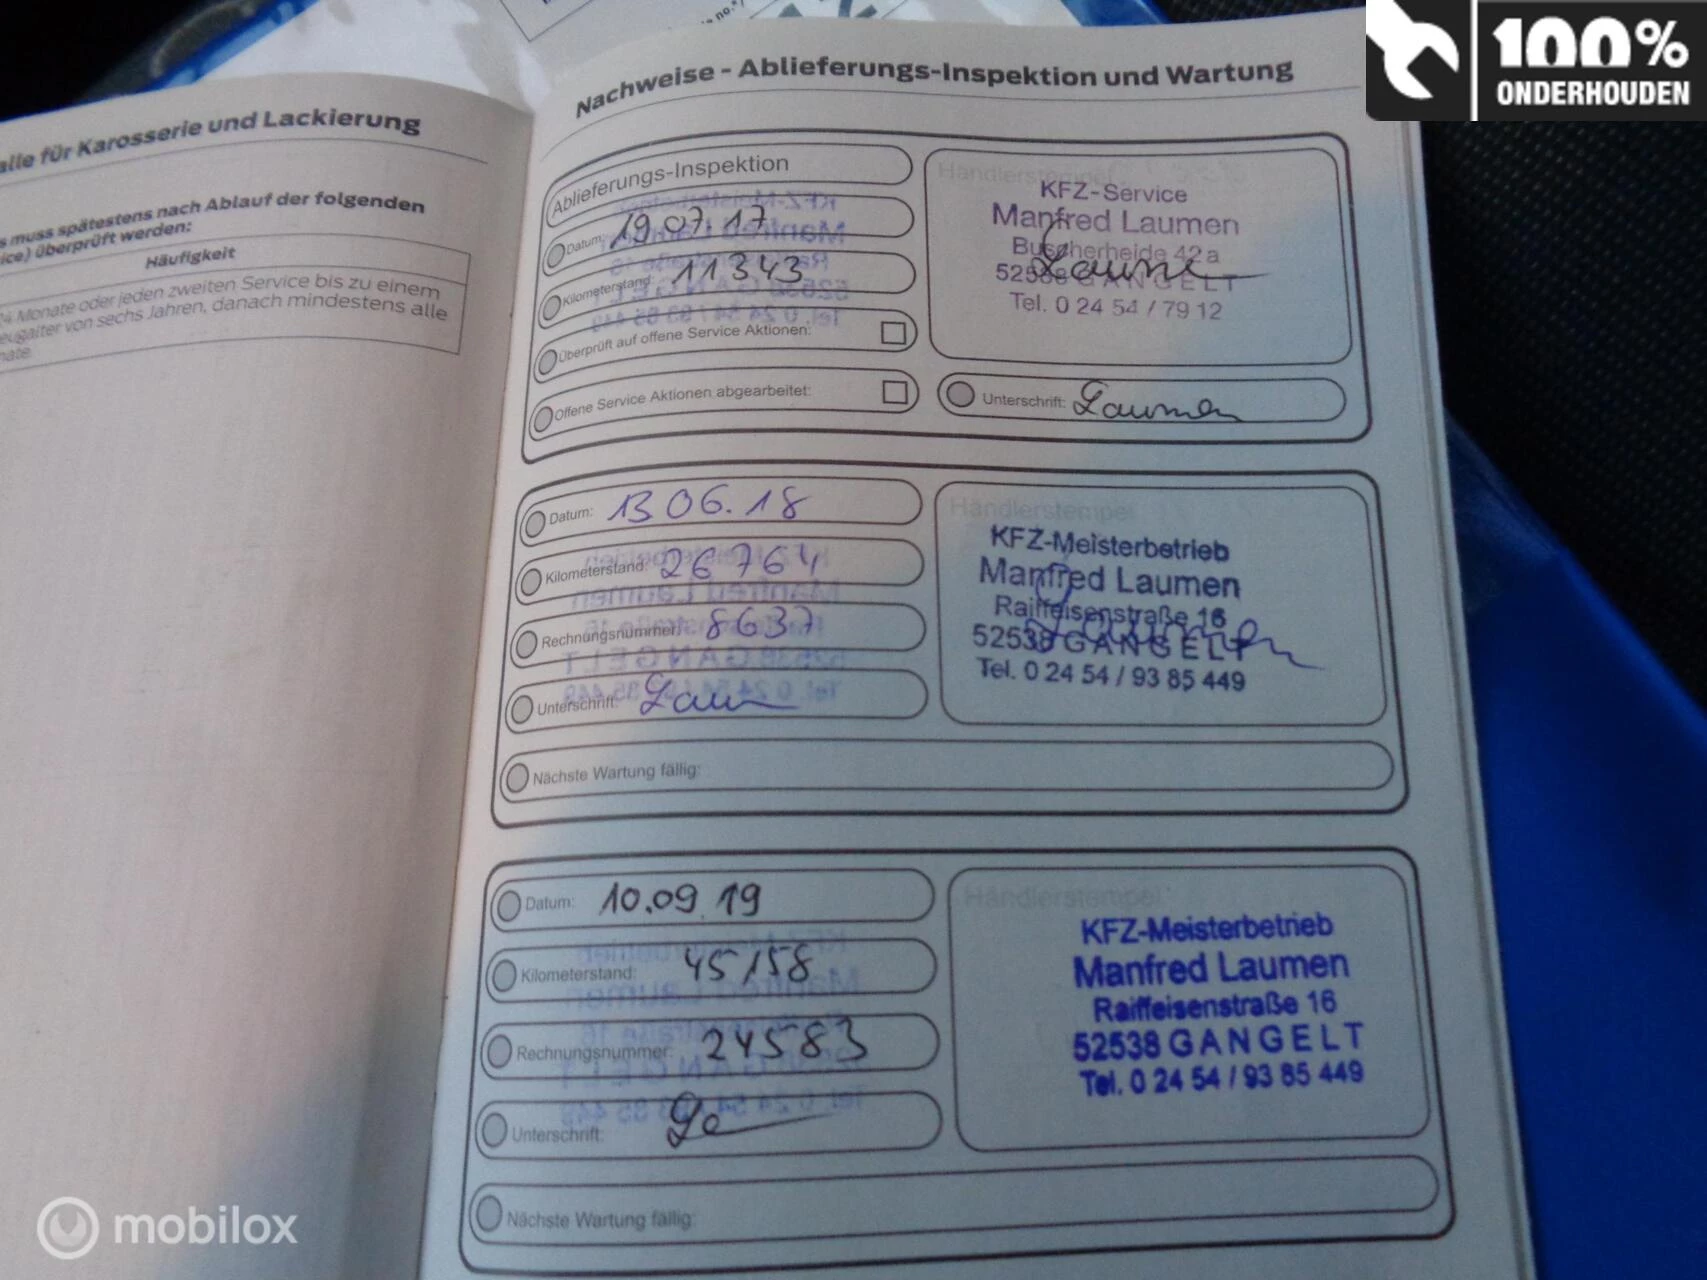 100%
ONDERHOUDEN
für Karosserie und Lackierung
muss spätestens nach Ablauf der folgenden
überprüft werden:
Häufigkeit
Monate oder jeden zweiten Service bis zu einem
von sechs Jahren, danach mindestens alle
Nachweise - Ablieferungs-Inspektion und Wartung
Ablieferungs-Inspektion
Datum: 19.07.17
Kilometerstand: 11343
Überprüft auf offene Service Aktionen:
Offene Service Aktionen abgearbeitet:
Händlerstempel
KFZ-Service
Manfred Laumen
Buscherheide 42a
52538 GANGELT
Tel. 0 24 54 / 79 12
Unterschrift: Laumen
Datum: 13 06. 18
Kilometerstand: 26764
Rechnungsnummer: 8637
Unterschrift:
Nächste Wartung fällig:
Händlerstempel
KFZ-Meisterbetrieb
Manfred Laumen
Raiffeisenstraße 16
52538 GANGELT
Tel. 0 24 54 / 93 85 449
Datum: 10.09.19
Kilometerstand: 45158
Rechnungsnummer: 24583
Unterschrift:
Nächste Wartung fällig:
Händlerstempel
KFZ-Meisterbetrieb
Manfred Laumen
Raiffeisenstraße 16
52538 GANGELT
Tel. 0 24 54 / 93 85 449
mobilox